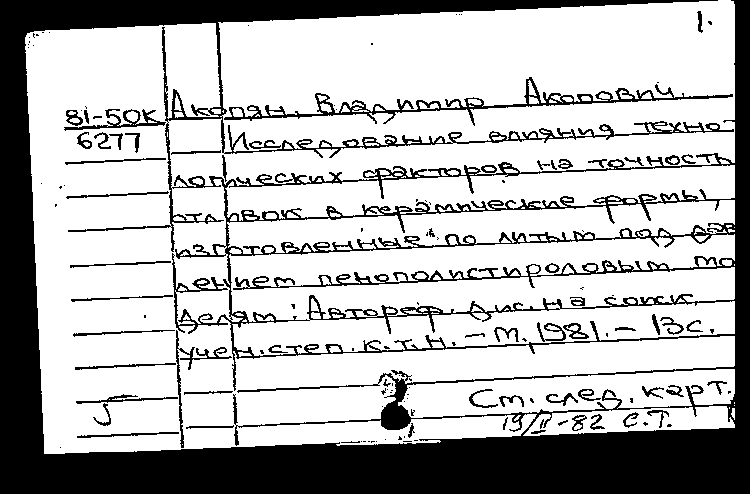 1.
81-50К Акопян, Владимир Акопович.
6277 Исследование влияния техно-
логических факторов на точность
отливок в керамические формы,
изготовленные по литым под дав
лением пенополистироловым мо
делям: Автореф. дис. на соиск.
учен. степ. к.т.н. – М., 1981. – 13с.
5 См. след. карт.
19/II-82 С.Т.